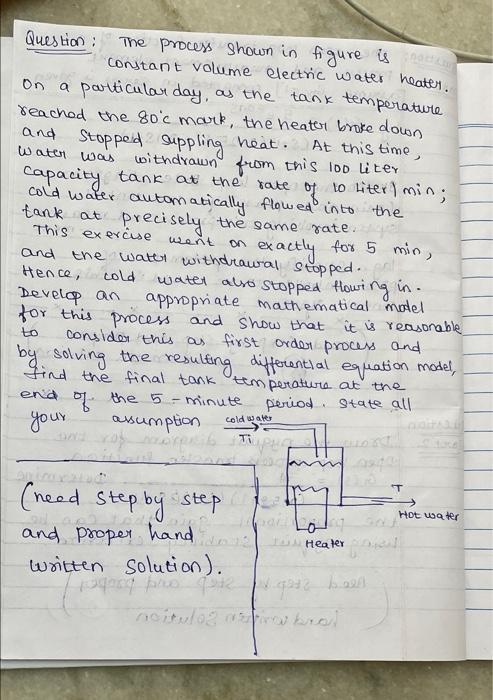 Question : The process shown in figure is
constant volume electric water heater.
On a particular day, as the tank temperature
reached the 80°c mark, the heater broke down
and stopped suppling heat. At this time,
water was withdrawn from this 100 liter
capacity tank at the rate of 10 liter/min;
cold water automatically flowed into the
tank at precisely the same rate.
This exercise went on exactly for 5 min,
and the water withdrawal stopped.
Hence, cold water also stopped flowing in.
Develop an appropriate mathematical model
for this process and show that it is reasonable
to consider this as first order process and
by solving the resulting differential equation model,
find the final tank temperature at the
end of the 5-minute period. State all
your assumption
cold water
Ti
T
Hot water
Heater
(need step by step
and proper hand
written solution).